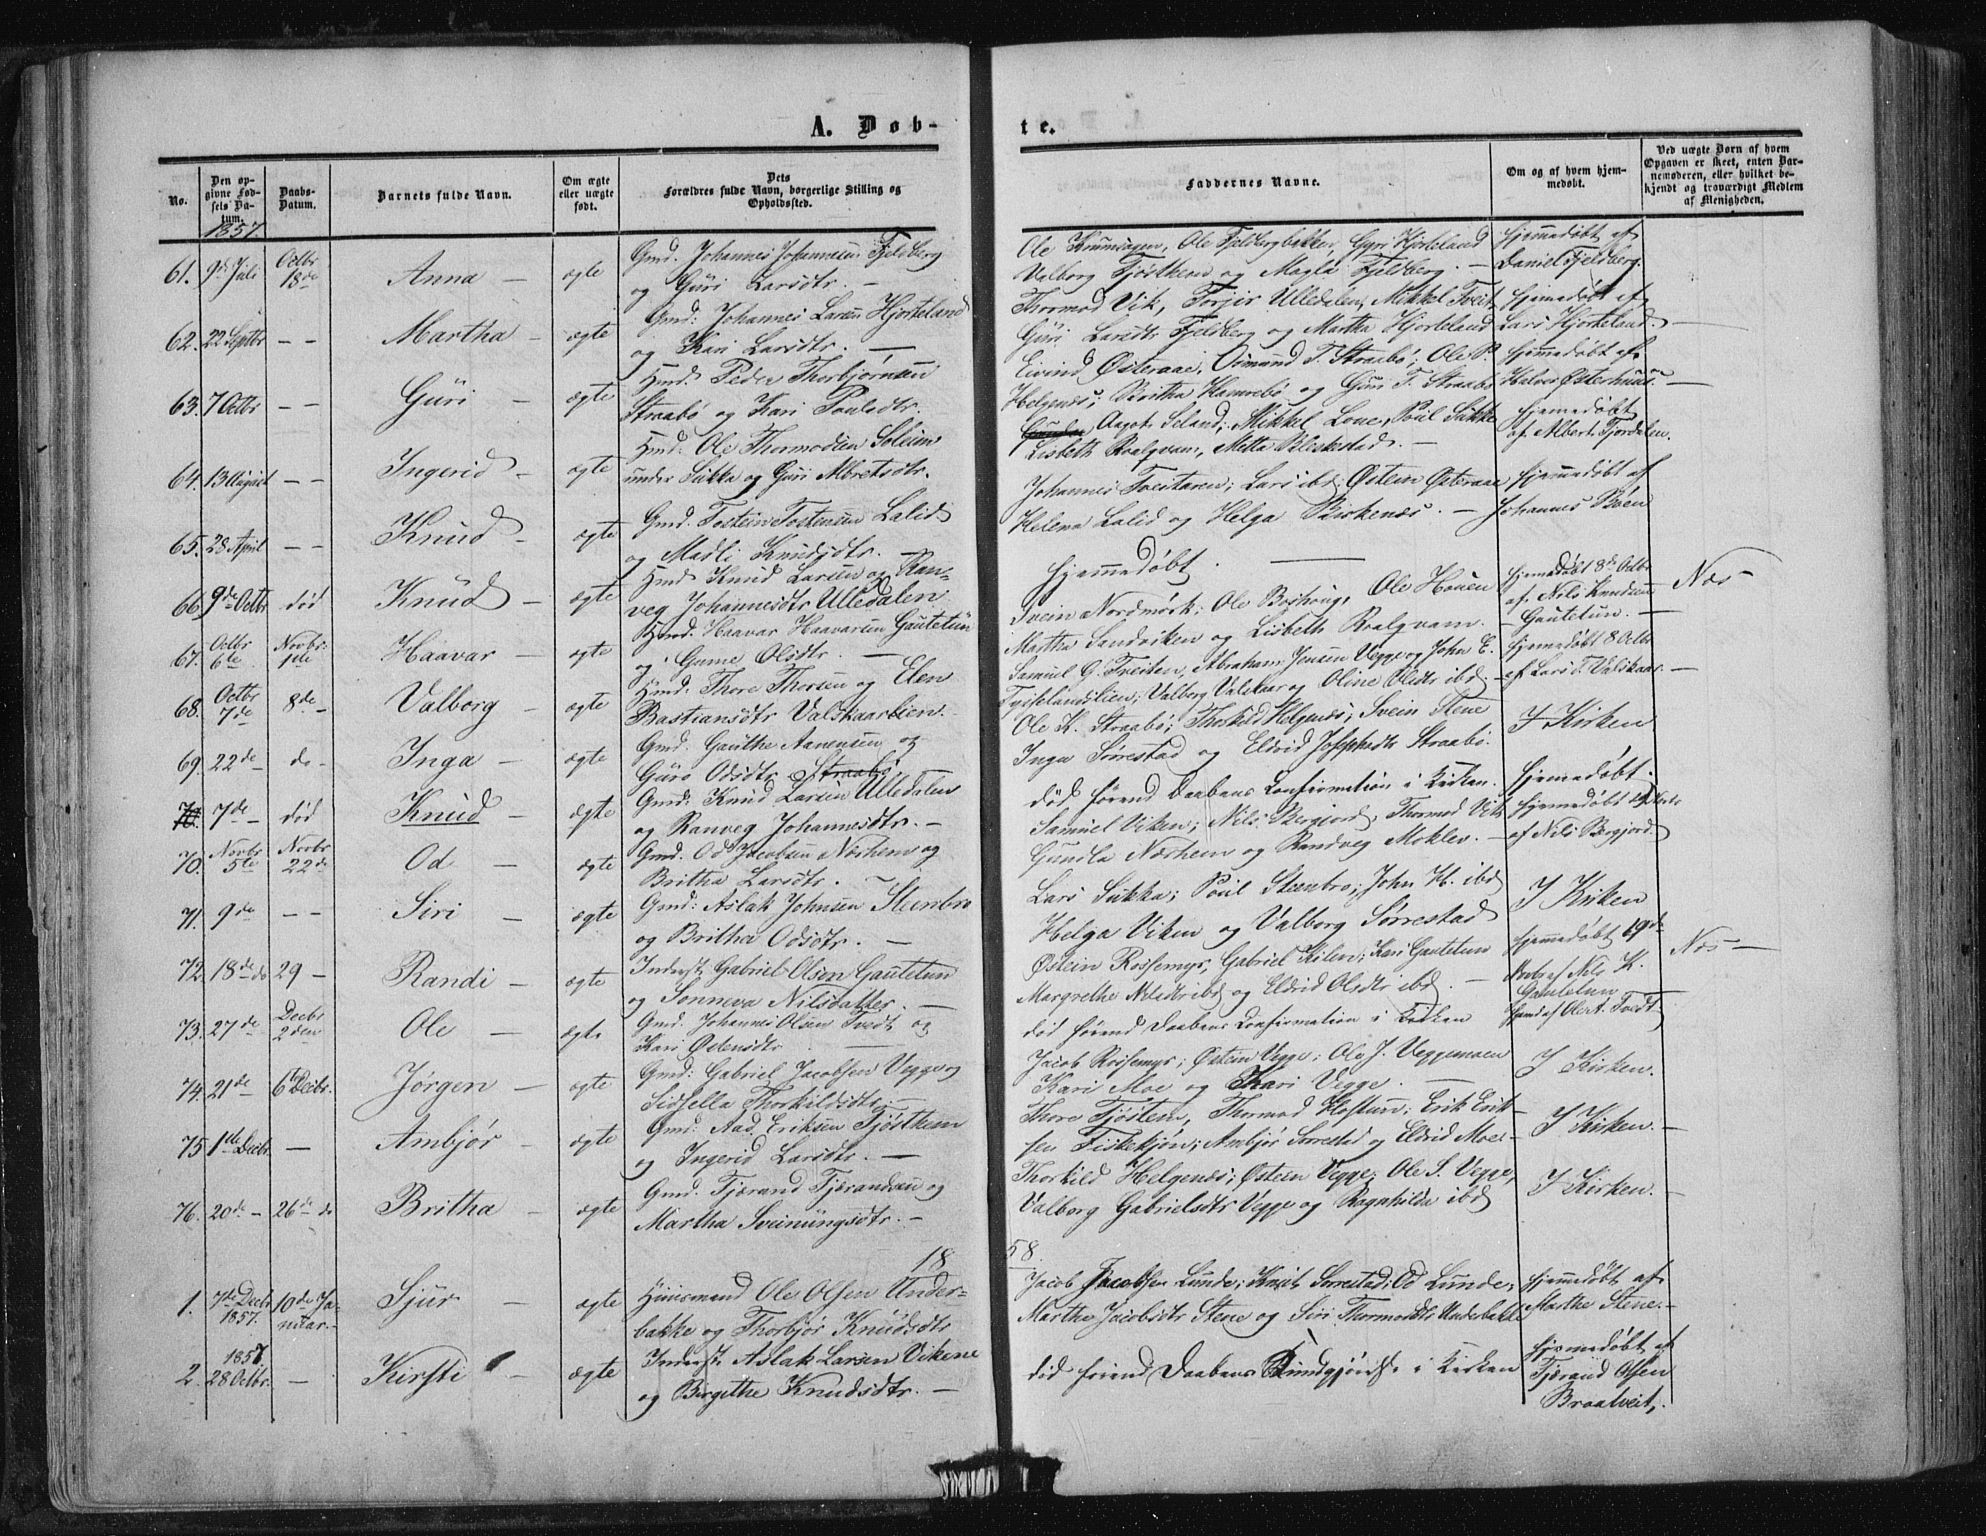 A. Døb-
te.
No.
Den op-
givne Fød-
sels Da-
tum.
Daabs-
Datum.
Barnets fulde Navn.
Om ægte
eller uægte
født.
Dets
Forældres fulde Navn, borgerlige Stilling og
Opholdssted.
Faddernes Navne.
Om og af hvem hjem-
medøbt.
Ved uægte Børn af hvem
Opgaven er skeet, enten Bar-
nemoderen, eller hvilket be-
kjendt og troværdigt Medlem
af Menigheden.
1857.
61. 9de Juli Octbr 18de Anna – ægte Gmd. Johannes Johannesen Fjeldberg
og Guri Larsdtr. –
Ole Fjeldbergbakken, Guri Hjorteland
Valborg Tjøsthem og Magla Fjeldberg. –
Hjemmedøbt af
Daniel Fjeldberg.
62. 22 Septbr – – Martha – ægte Gmd: Johannes Larsen Hjorteland
og Kari Larsdtr. –
Thormod Vik, Torjer Ulledalen, Mikkel Tveit
Guri Larsdtr Fjeldberg og Martha Hjorteland
Hjemmedøbt af
Lars Hjorteland. –
63. 7 Octbr – – Guri – ægte Hmd. Peder Thorbjørnsen
Straabø og Kari Poulsdtr.
Eivind Østeraae, Osmund T. Straabø; Ole P.
Helgenæs; Britha Hamrebø og Guri T. Straabø
Hjemmedøbt af
Halvor Østerhuus. –
64. 13 August – – Ingerid – ægte Hmd. Ole Thormodsen Soleim
under Sukka og Guri Albretsdtr.
Aagot Seland; Mikkel Lone, Poul Sukke
Lisbeth Roalqvam, Metta Bleskestad. –
Hjemmedøbt
af Albert Fjordalen.
65. 28 April – – Knud – ægte Gmd. Tostein Tostensen Lalid
og Madli Knudsdtr. –
Johannes Tveitaren; Lars ibd; Østein Østeraae
Helena Lalid og Helga Birkenæs. –
Hjemmedøbt af
Johannes Bøen
66. 9de Octbr død Knud – ægte Hmd. Knud Larsen og Ran-
veg Johannesdtr Ulledalen
Hjemmedøbt. –
Hjemmedøbt 8de Octbr
af Nils Knudsen
Gautetun. –
Næs –
67. Octbr 6te Novbr 1ste Haavar – ægte Hmd. Haavar Haavarsen Gautetun
og Gunne Olsdtr. –
Svein Nordmork; Ole Boshoug, Ole Houen
Martha Sandviken og Lisbeth Roalqvam.
Hjemmedøbt 8 Octbr
af Lars T. Valskaar. –
68. Octbr 7de 8de – Valborg – ægte Hmd. Thore Thorsen og Elen
Bastiansdtr Valskaarlien.
Samuel G. Tveiten, Abraham Jensen Vegge og John E.
Tysselandslien; Valborg Valskaar og Oline Olsdtr ibd –
69. 22de – do – Inga – ægte Gmd. Gauthe Aanensen og
Guro Odsdtr Straabø
Ole K. Straabø; Thorkild Helgenæs; Svein Stene
Inga Sørrestad og Eldrid Josephsdtr Straabø.
I Kirken
70. 7de – død Knud – ægte Gmd: Knud Larsen Ulledalen
og Ranveg Johannesdtr. –
død førend Daabens Confirmation i Kirken.
Hjemmedøbt.
70. Novbr 5te Novbr 22de Od – ægte Gmd. Od Jacobsen Næshem og
Britha Larsdtr. –
Samuel Viken; Nils Bergjord, Thormod Vik
Gunla Næshem og Randveg Moklev. –
Hjemmedøbt
af Nils Bergjord.
71. 9de – – Siri – ægte Gmd: Aslak Johnsen Steenbro
og Britha Odsdtr. –
Lars Sukka; Poul Steenbro; John H. ibd
Helga Viken og Valborg Sørrestad
I Kirken
72. 18de do 29 – Randi – ægte Inderst Gabriel Olsen Gautetun
og Sonneva Nilsdatter. –
Østein Rossemyr, Gabriel Kilen; Kari Gautetun
Margrethe Nilsdtr ibd og Eldrid Olsdtr ibd. –
Hjemmedøbt 19de
Novbr af Nils K.
Gautetun
Næs –
73. 27de Decbr 2den Ole – ægte Gmd. Johannes Olsen Tvedt og
Kari Østensdtr –
død førend Daabens Confirmation i Kirken
74. 21de 6te Decbr. Jørgen – ægte Gmd: Gabriel Jacobsen Vegge og
Sidsella Thorkildsdtr. –
Jacob Rossemyr; Østein Vegge; Ole J. Veggemoen
Kari Moe og Kari Vegge. –
I Kirken.
75. 1ste Decbr. – Ambjør – ægte Gmd: Aad Eriksen Tjøsthem
og Ingerid Larsdtr. –
Thore Tjøstem, Thormod Hoftun; Erik Erik-
sen Fiskekjøn; Ambjør Sørrestad og Eldrid Moe. –
I Kirken. –
76. 20de – 26de do Britha – ægte Gmd. Tjærand Tjærandsen og
Martha Sveinungsdtr. –
Thorkild Helgenæs; Østein Vegge; Ole S. Vegge,
Valborg Gabrielsdtr Vegge og Ragnhilda ibd
I Kirken. –
18 58.
1. 7de Decbr 1857. 10de Ja-
nuar. – Sjur – ægte Huusmand Ole Olsen Under-
bakke og Thorbjør Knudsdtr
Jacob Jacobsen Lunde; Knut Sørrestad; Od Lunde;
Martha Jacobsdtr Stene og Siri Thormodsdtr Underbakke
Hjemmedøbt af
Marthe Stene. –
2. 1857. 28 Octbr. – Kirsti – ægte Inderst Aslak Larsen Vikene
og Birgithe Knudsdtr. –
død førend Daabens Kundgjørelse i Kirken
Hjemmedøbt af
Tjærand Olsen
Braatveit.